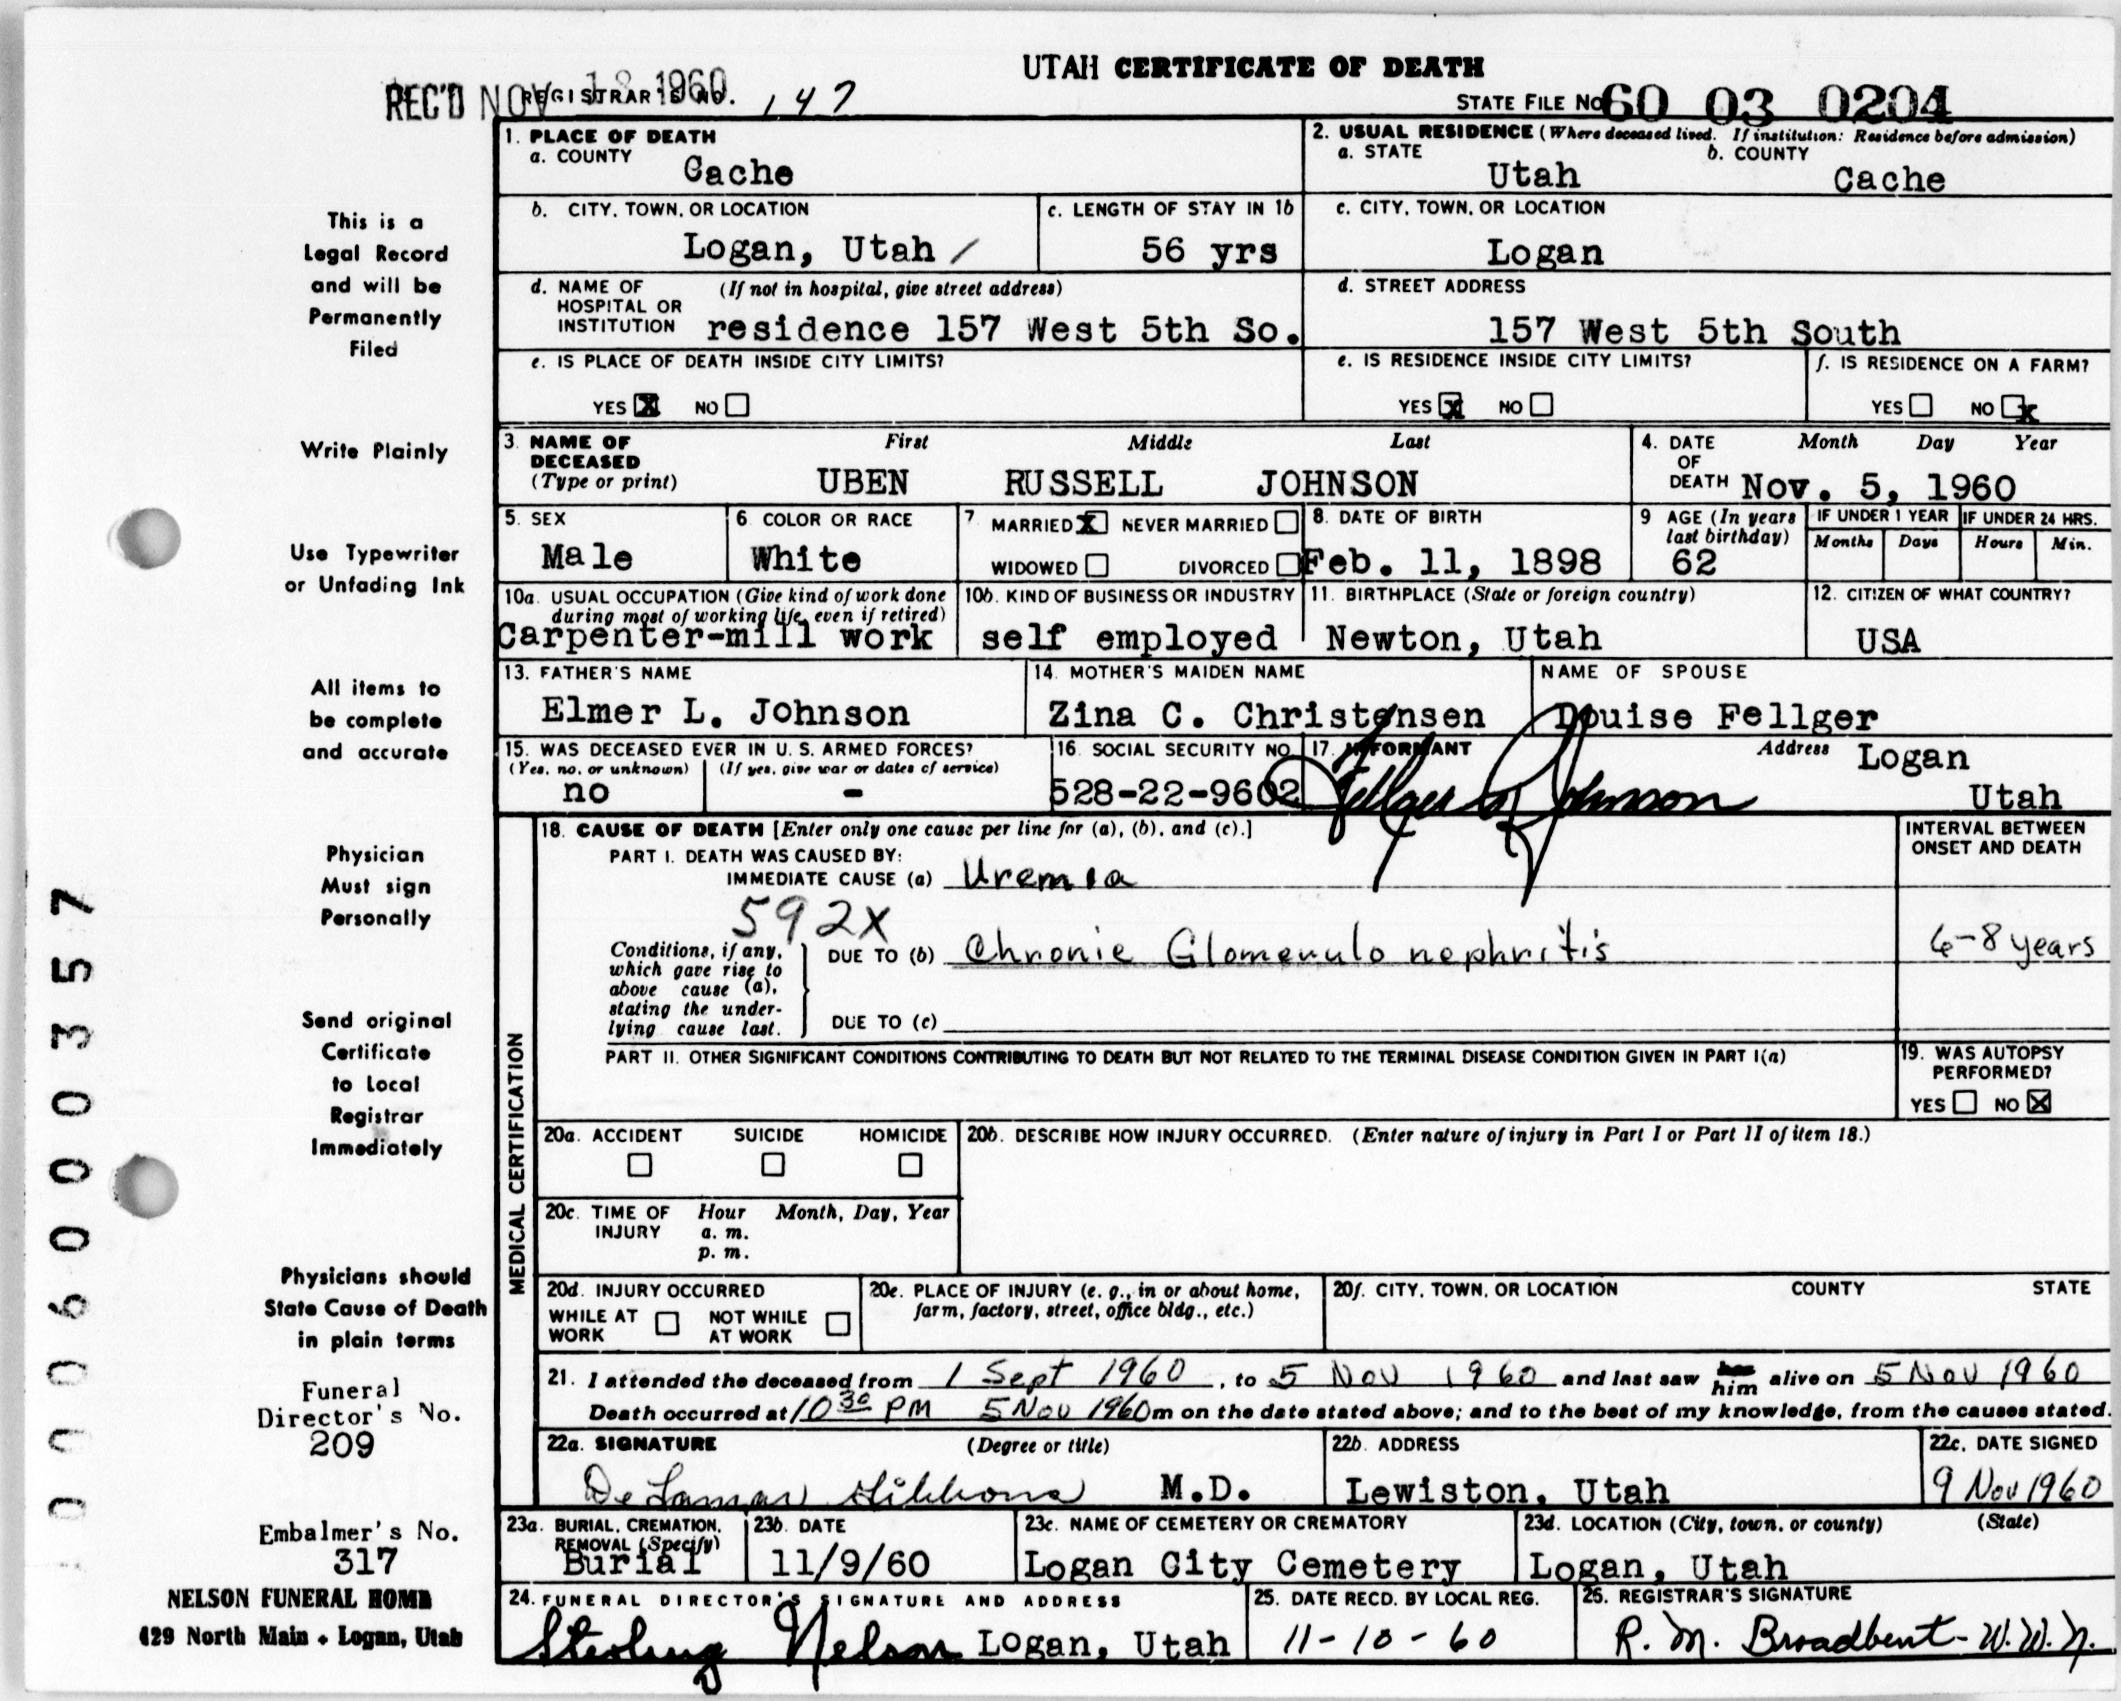 UTAH CERTIFICATE OF DEATH
REC'D NOV 18 1960 REGISTRAR'S NO. 147
STATE FILE NO 60 03 0204
1. PLACE OF DEATH
a. COUNTY
Cache
2. USUAL RESIDENCE (Where deceased lived. If institution: Residence before admission)
a. STATE b. COUNTY
Utah Cache
b. CITY, TOWN, OR LOCATION
Logan, Utah
c. LENGTH OF STAY IN 1b
56 yrs
c. CITY, TOWN, OR LOCATION
Logan
d. NAME OF HOSPITAL OR INSTITUTION (If not in hospital, give street address)
residence 157 West 5th So.
d. STREET ADDRESS
157 West 5th South
e. IS PLACE OF DEATH INSIDE CITY LIMITS?
YES X NO
e. IS RESIDENCE INSIDE CITY LIMITS?
YES X NO
f. IS RESIDENCE ON A FARM?
YES NO X
3. NAME OF DECEASED (Type or print)
First Middle Last
UBEN RUSSELL JOHNSON
4. DATE OF DEATH Month Day Year
Nov. 5, 1960
5. SEX
Male
6. COLOR OR RACE
White
7. MARRIED X NEVER MARRIED
WIDOWED DIVORCED
8. DATE OF BIRTH
Feb. 11, 1898
9 AGE (In years last birthday)
62
IF UNDER 1 YEAR
Months Days
IF UNDER 24 HRS.
Hours Min.
10a. USUAL OCCUPATION (Give kind of work done during most of working life, even if retired)
Carpenter-mill work
10b. KIND OF BUSINESS OR INDUSTRY
self employed
11. BIRTHPLACE (State or foreign country)
Newton, Utah
12. CITIZEN OF WHAT COUNTRY?
USA
13. FATHER'S NAME
Elmer L. Johnson
14. MOTHER'S MAIDEN NAME
Zina C. Christensen
NAME OF SPOUSE
Louise Fellger
15. WAS DECEASED EVER IN U. S. ARMED FORCES?
(Yes, no, or unknown) (If yes, give war or dates of service)
no -
16. SOCIAL SECURITY NO.
528-22-9602
17. INFORMANT Address
Johnson
Logan
Utah
18. CAUSE OF DEATH [Enter only one cause per line for (a), (b), and (c).]
PART I. DEATH WAS CAUSED BY:
IMMEDIATE CAUSE (a) Uremia
INTERVAL BETWEEN ONSET AND DEATH
592X
Conditions, if any, which gave rise to above cause (a), stating the underlying cause last.
DUE TO (b) Chronic Glomerulo nephritis
6-8 years
DUE TO (c)
PART II. OTHER SIGNIFICANT CONDITIONS CONTRIBUTING TO DEATH BUT NOT RELATED TO THE TERMINAL DISEASE CONDITION GIVEN IN PART I(a)
19. WAS AUTOPSY PERFORMED?
YES NO X
MEDICAL CERTIFICATION
20a. ACCIDENT SUICIDE HOMICIDE
20b. DESCRIBE HOW INJURY OCCURRED. (Enter nature of injury in Part I or Part II of item 18.)
20c. TIME OF INJURY Hour Month, Day, Year
a. m.
p. m.
20d. INJURY OCCURRED
WHILE AT WORK NOT WHILE AT WORK
20e. PLACE OF INJURY (e. g., in or about home, farm, factory, street, office bldg., etc.)
20f. CITY, TOWN, OR LOCATION COUNTY STATE
21. I attended the deceased from 1 Sept 1960, to 5 Nov 1960 and last saw him alive on 5 Nov 1960
Death occurred at 10 30 PM 5 Nov 1960 m on the date stated above; and to the best of my knowledge, from the causes stated.
22a. SIGNATURE (Degree or title)
DeLamar Gibbons M.D.
22b. ADDRESS
Lewiston, Utah
22c. DATE SIGNED
9 Nov 1960
23a. BURIAL, CREMATION, REMOVAL (Specify)
Burial
23b. DATE
11/9/60
23c. NAME OF CEMETERY OR CREMATORY
Logan City Cemetery
23d. LOCATION (City, town, or county) (State)
Logan, Utah
24. FUNERAL DIRECTOR'S SIGNATURE AND ADDRESS
Sterling Nelson Logan, Utah
25. DATE RECD. BY LOCAL REG.
11-10-60
26. REGISTRAR'S SIGNATURE
R. M. Broadbent - W.W.N.
This is a
Legal Record
and will be
Permanently
Filed
Write Plainly
Use Typewriter
or Unfading Ink
All items to
be complete
and accurate
Physician
Must sign
Personally
Send original
Certificate
to Local
Registrar
Immediately
Physicians should
State Cause of Death
in plain terms
Funeral
Director's No.
209
Embalmer's No.
317
NELSON FUNERAL HOME
429 North Main • Logan, Utah
0006000357